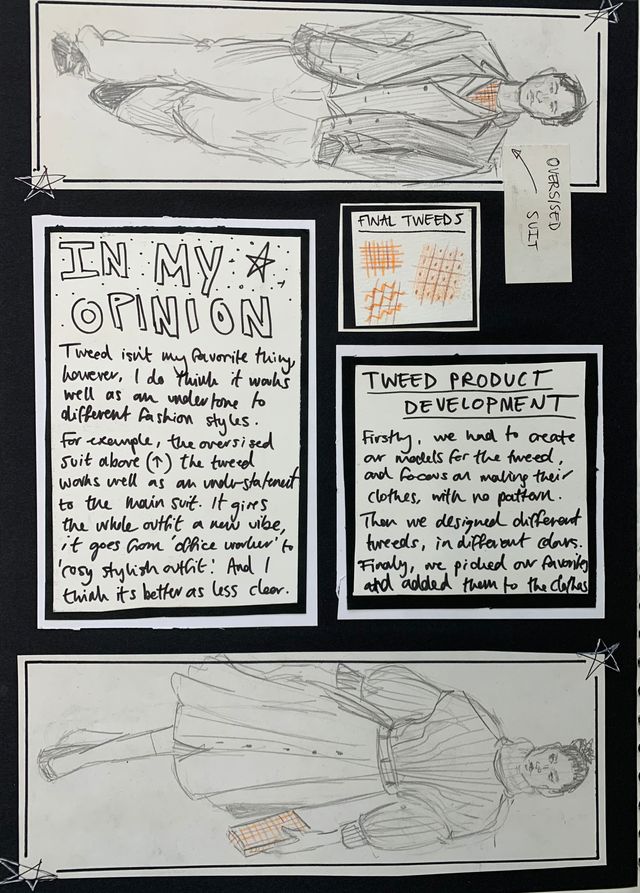 OVERSISED
SUIT
FINAL TWEEDS
IN MY
OPINION
Tweed isn't my favorite thing,
however, I do think it works
well as an undertone to
different fashion styles.
For example, the oversised
suit above (↑) the tweed
works well as an understatement
to the main suit. It gives
the whole outfit a new vibe,
it goes from 'office worker' to
'cosy stylish outfit'. And I
think it's better as less clear.
TWEED PRODUCT
DEVELOPMENT
Firstly, we had to create
our models for the tweed,
and focus on making their
clothes, with no pattern.
Then we designed different
tweeds, in different colours.
Finally, we picked our favorites
and added them to the clothes